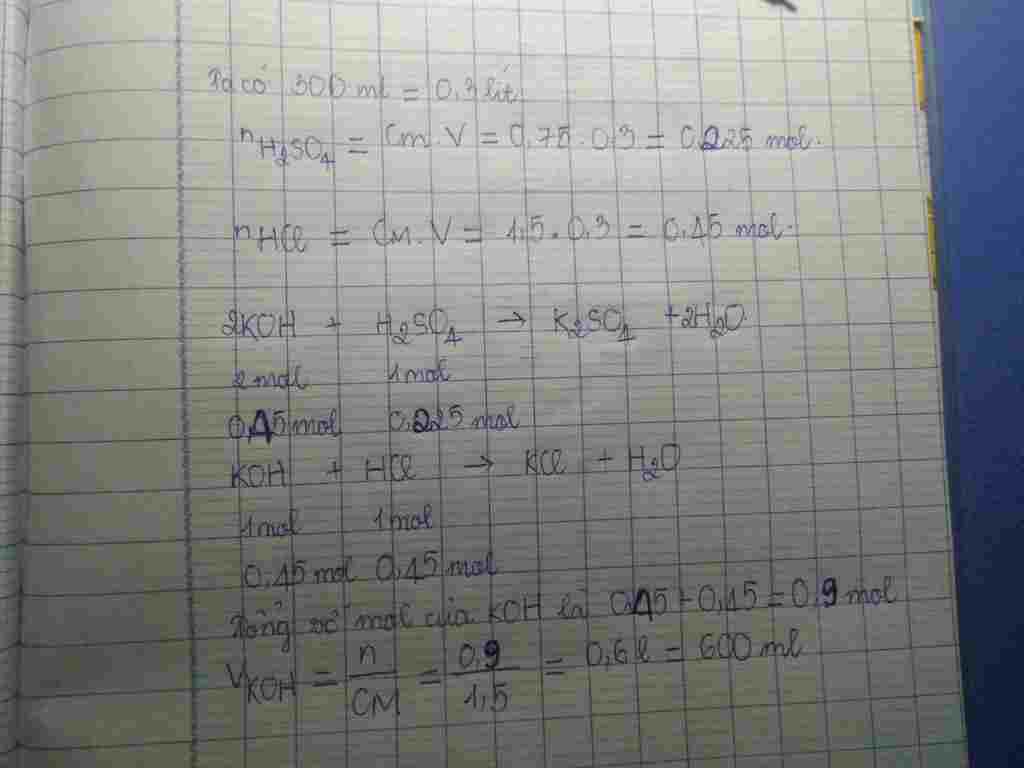 Ta có 300 ml = 0,3 lít
nH₂SO₄ = Cm.V = 0,75.0,3 = 0,225 mol.
nHCl = Cm.V = 1,5.0,3 = 0,45 mol.
2KOH + H₂SO₄ → K₂SO₄ + 2H₂O
2 mol 1 mol
0,45 mol 0,225 mol
KOH + HCl → KCl + H₂O
1 mol 1 mol
0,45 mol 0,45 mol
Tổng số mol của KOH là 0,45 + 0,45 = 0,9 mol
VKOH = n/CM = 0,9/1,5 = 0,6 l = 600 ml